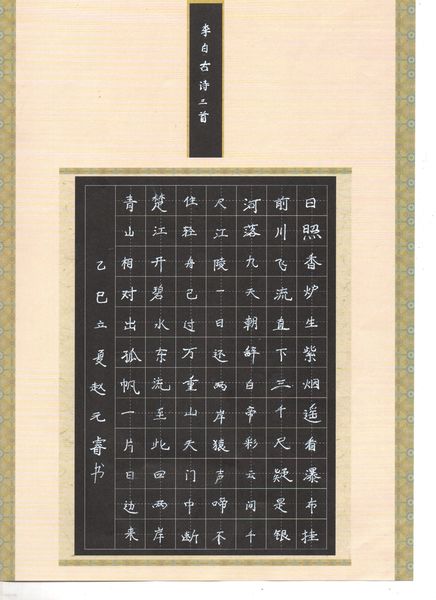 李白古诗三首
日照香炉生紫烟遥看瀑布挂
前川飞流直下三千尺疑是银
河落九天朝辞白帝彩云间千
尺江陵一日还两岸猿声啼不
住轻舟已过万重山天门中断
楚江开碧水东流至此回两岸
青山相对出孤帆一片日边来
乙巳立夏赵元睿书